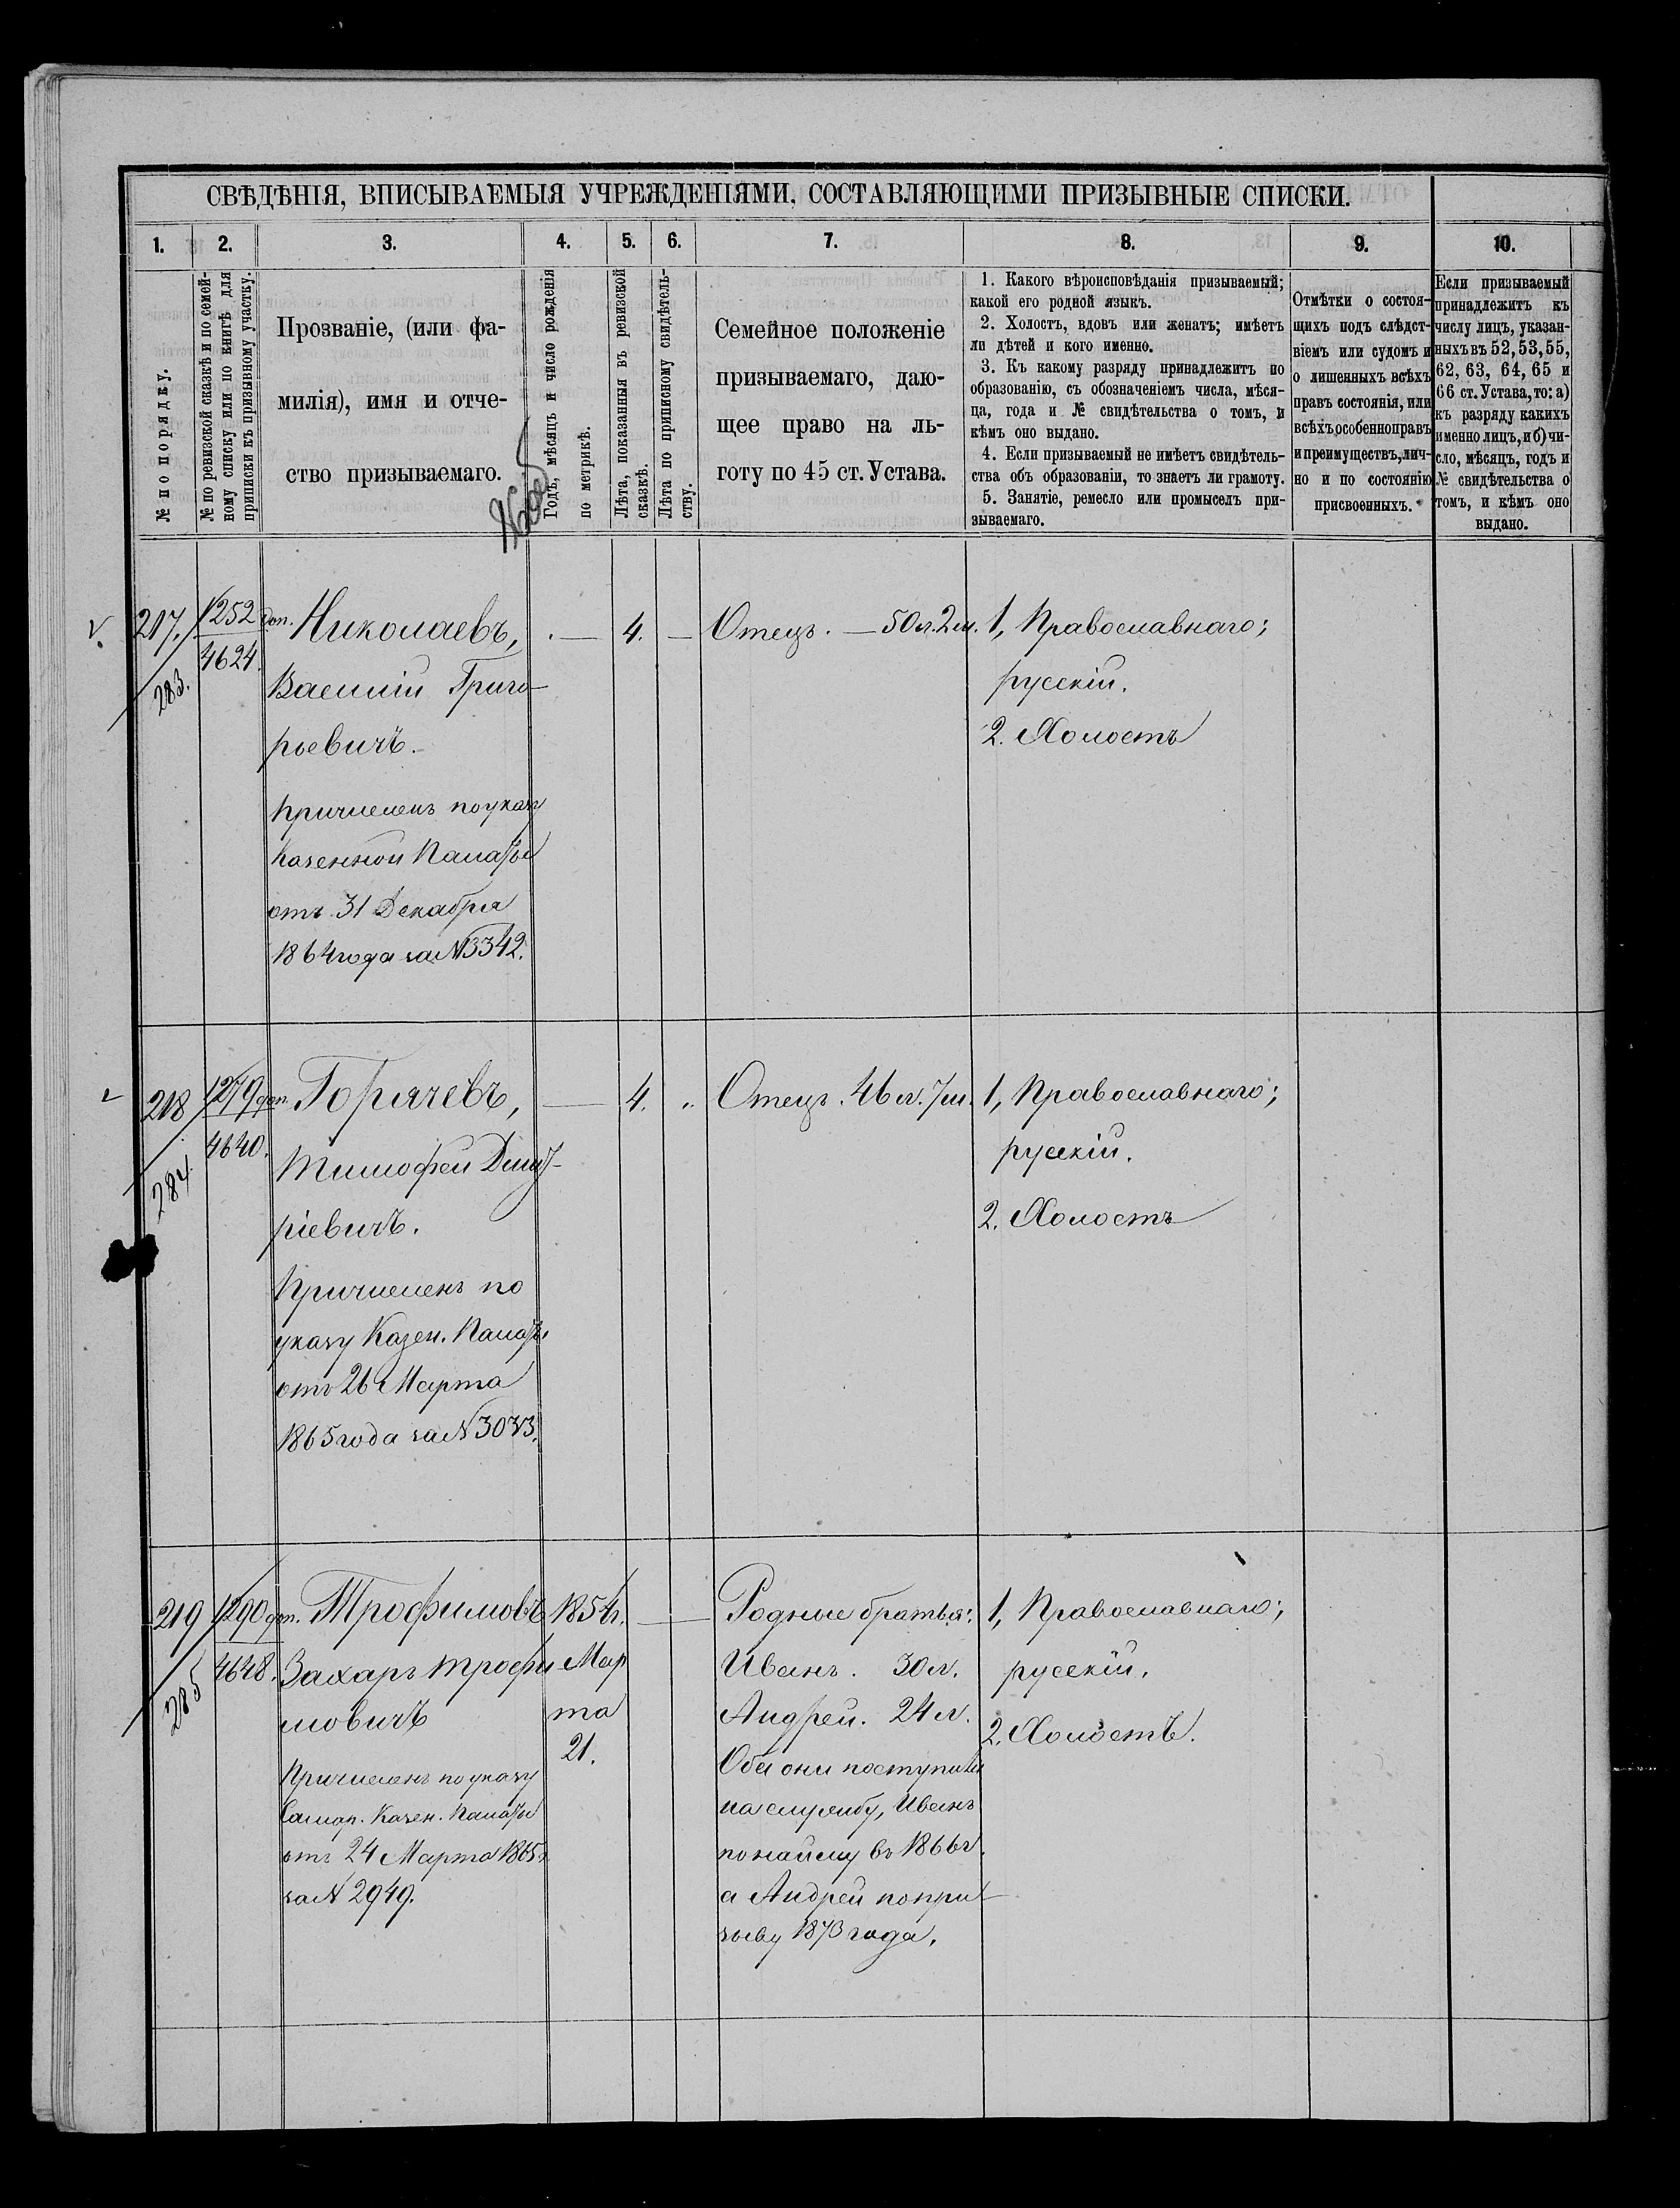 СВѢДѢНІЯ, ВПИСЫВАЕМЫЯ УЧРЕЖДЕНІЯМИ, СОСТАВЛЯЮЩИМИ ПРИЗЫВНЫЕ СПИСКИ.
1. 2. 3. 4. 5. 6. 7. 8. 9. 10.
№ по порядку.
№ по ревизской сказкѣ и по семей-
ному списку или по книгѣ для
приписки къ призывному участку.
Прозваніе, (или фа-
милія), имя и отче-
ство призываемаго.
Годъ, мѣсяцъ и число рожденія
по метрикѣ.
Лѣта, показанныя въ ревизской
сказкѣ.
Лѣта по приписному свидѣтель-
ству.
Семейное положеніе
призываемаго, даю-
щее право на ль-
готу по 45 ст. Устава.
1. Какого вѣроисповѣданія призываемый;
какой его родной языкъ.
2. Холостъ, вдовъ или женатъ; имѣетъ
ли дѣтей и кого именно.
3. Къ какому разряду принадлежитъ по
образованію, съ обозначеніемъ числа, мѣся-
ца, года и № свидѣтельства о томъ, и
кѣмъ оно выдано.
4. Если призываемый не имѣетъ свидѣтель-
ства объ образованіи, то знаетъ ли грамоту.
5. Занятіе, ремесло или промыселъ при-
зываемаго.
Отмѣтки о состоя-
щихъ подъ слѣдст-
віемъ или судомъ и
о лишенныхъ всѣхъ
правъ состоянія, или
всѣхъ особенно правъ
и преимуществъ, лич-
но и по состоянію
присвоенныхъ.
Если призываемый
принадлежитъ къ
числу лицъ, указан-
ныхъ въ 52, 53, 55,
62, 63, 64, 65 и
66 ст. Устава, то: а)
къ разряду какихъ
именно лицъ, и б) чи-
сло, мѣсяцъ, годъ и
№ свидѣтельства о
томъ, и кѣмъ оно
выдано.
217. 1252 доп. Николаевъ, — 4. — Отецъ. — 50 л. 2 м. 1, Православнаго;
283. 4624. Василій Григо-
русскій.
рьевичъ.
2. Холостъ
Причисленъ по указу
Казенной Палаты
отъ 31 Декабря
1864 года за №
218 1279 доп. Горячевъ, — 4. „ Отецъ. 46 л. 7 м. 1, Православнаго;
284. 4640. Тимофей Дмит-
русскій.
ріевичъ.
2. Холостъ
Причисленъ по
указу Казен. Палаты
отъ 26 Марта
1865 года за №
219 1290 доп. Трофимовъ 1854 г. — Родные братья: 1, Православнаго;
285 4648. Захаръ Трофи Мар Иванъ. 30 л. русскій.
мовичъ та Андрей. 24 л. 2. Холостъ.
21.
Причисленъ по указу
Самар. Казен. Палаты
отъ 24 Марта 1865 г.
за № 2949.
Оба они поступили
на службу, Иванъ
по найму въ 1866 г.
а Андрей по при
зыву 1873 года.